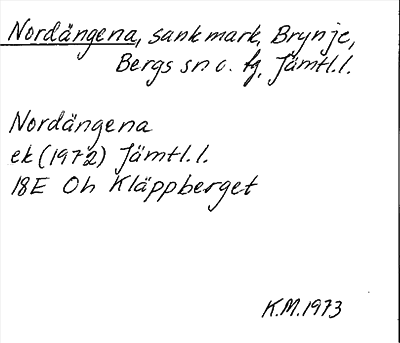 Nordängena, sankmark, Brynje,
Bergs sn o. fg, Jämtl.l.
Nordängena
ek (1972) Jämtl.l.
18E Oh Kläppberget
K.M.1973